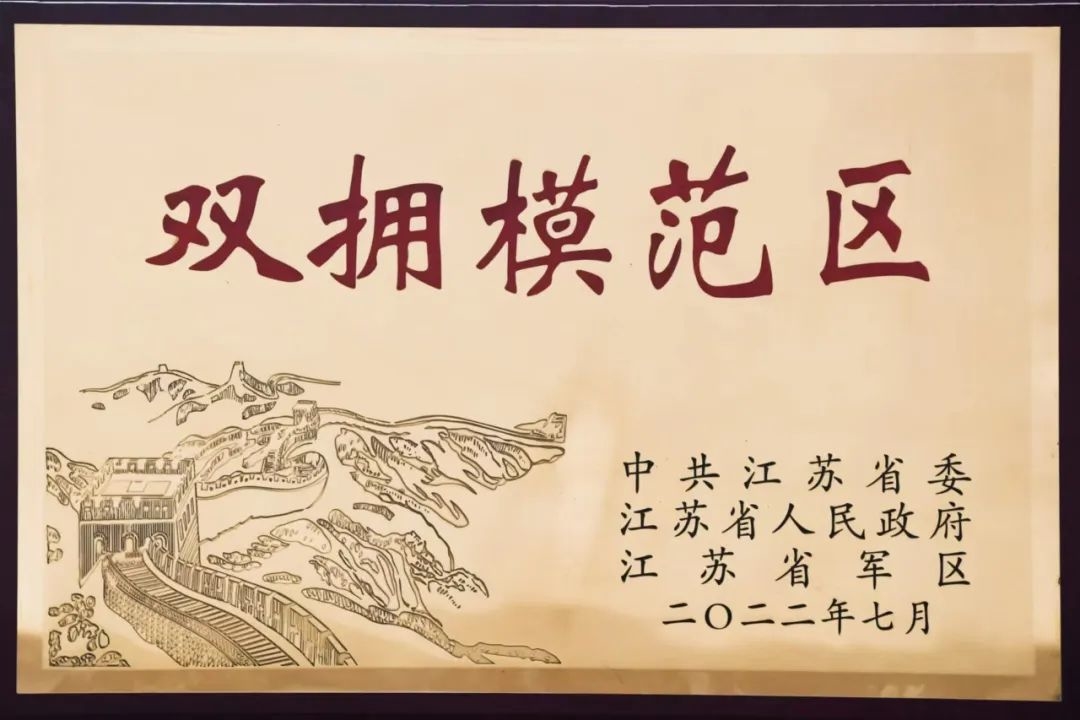 双拥模范区
中共江苏省委
江苏省人民政府
江苏省军区
二〇二二年七月